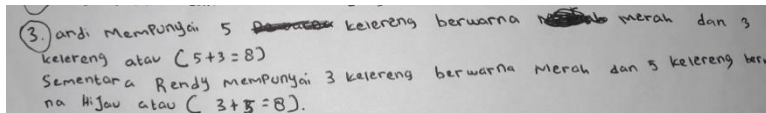 3. Jandi mempunyai 5 kelereng berwarna merah dan 3
kelereng atau (5+3=8)
Sementara Rendy mempunyai 3 kelereng berwarna merah dan 5 kelereng ber
na Hijau atau ( 3+5=8).